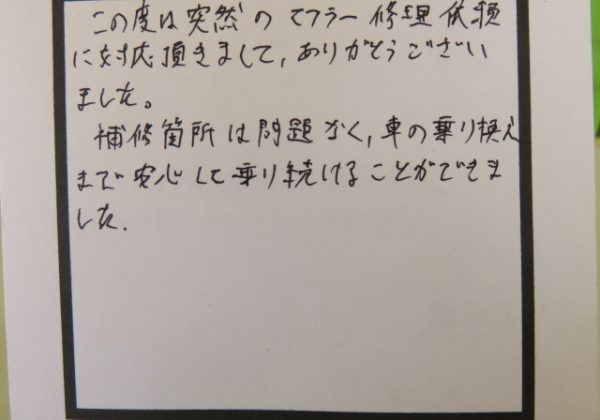 この度は突然のマフラー修理依頼
に対応頂きまして,ありがとうござい
ました。
補修箇所は問題なく,車の乗り換え
まで安心して乗り続けることができま
した.